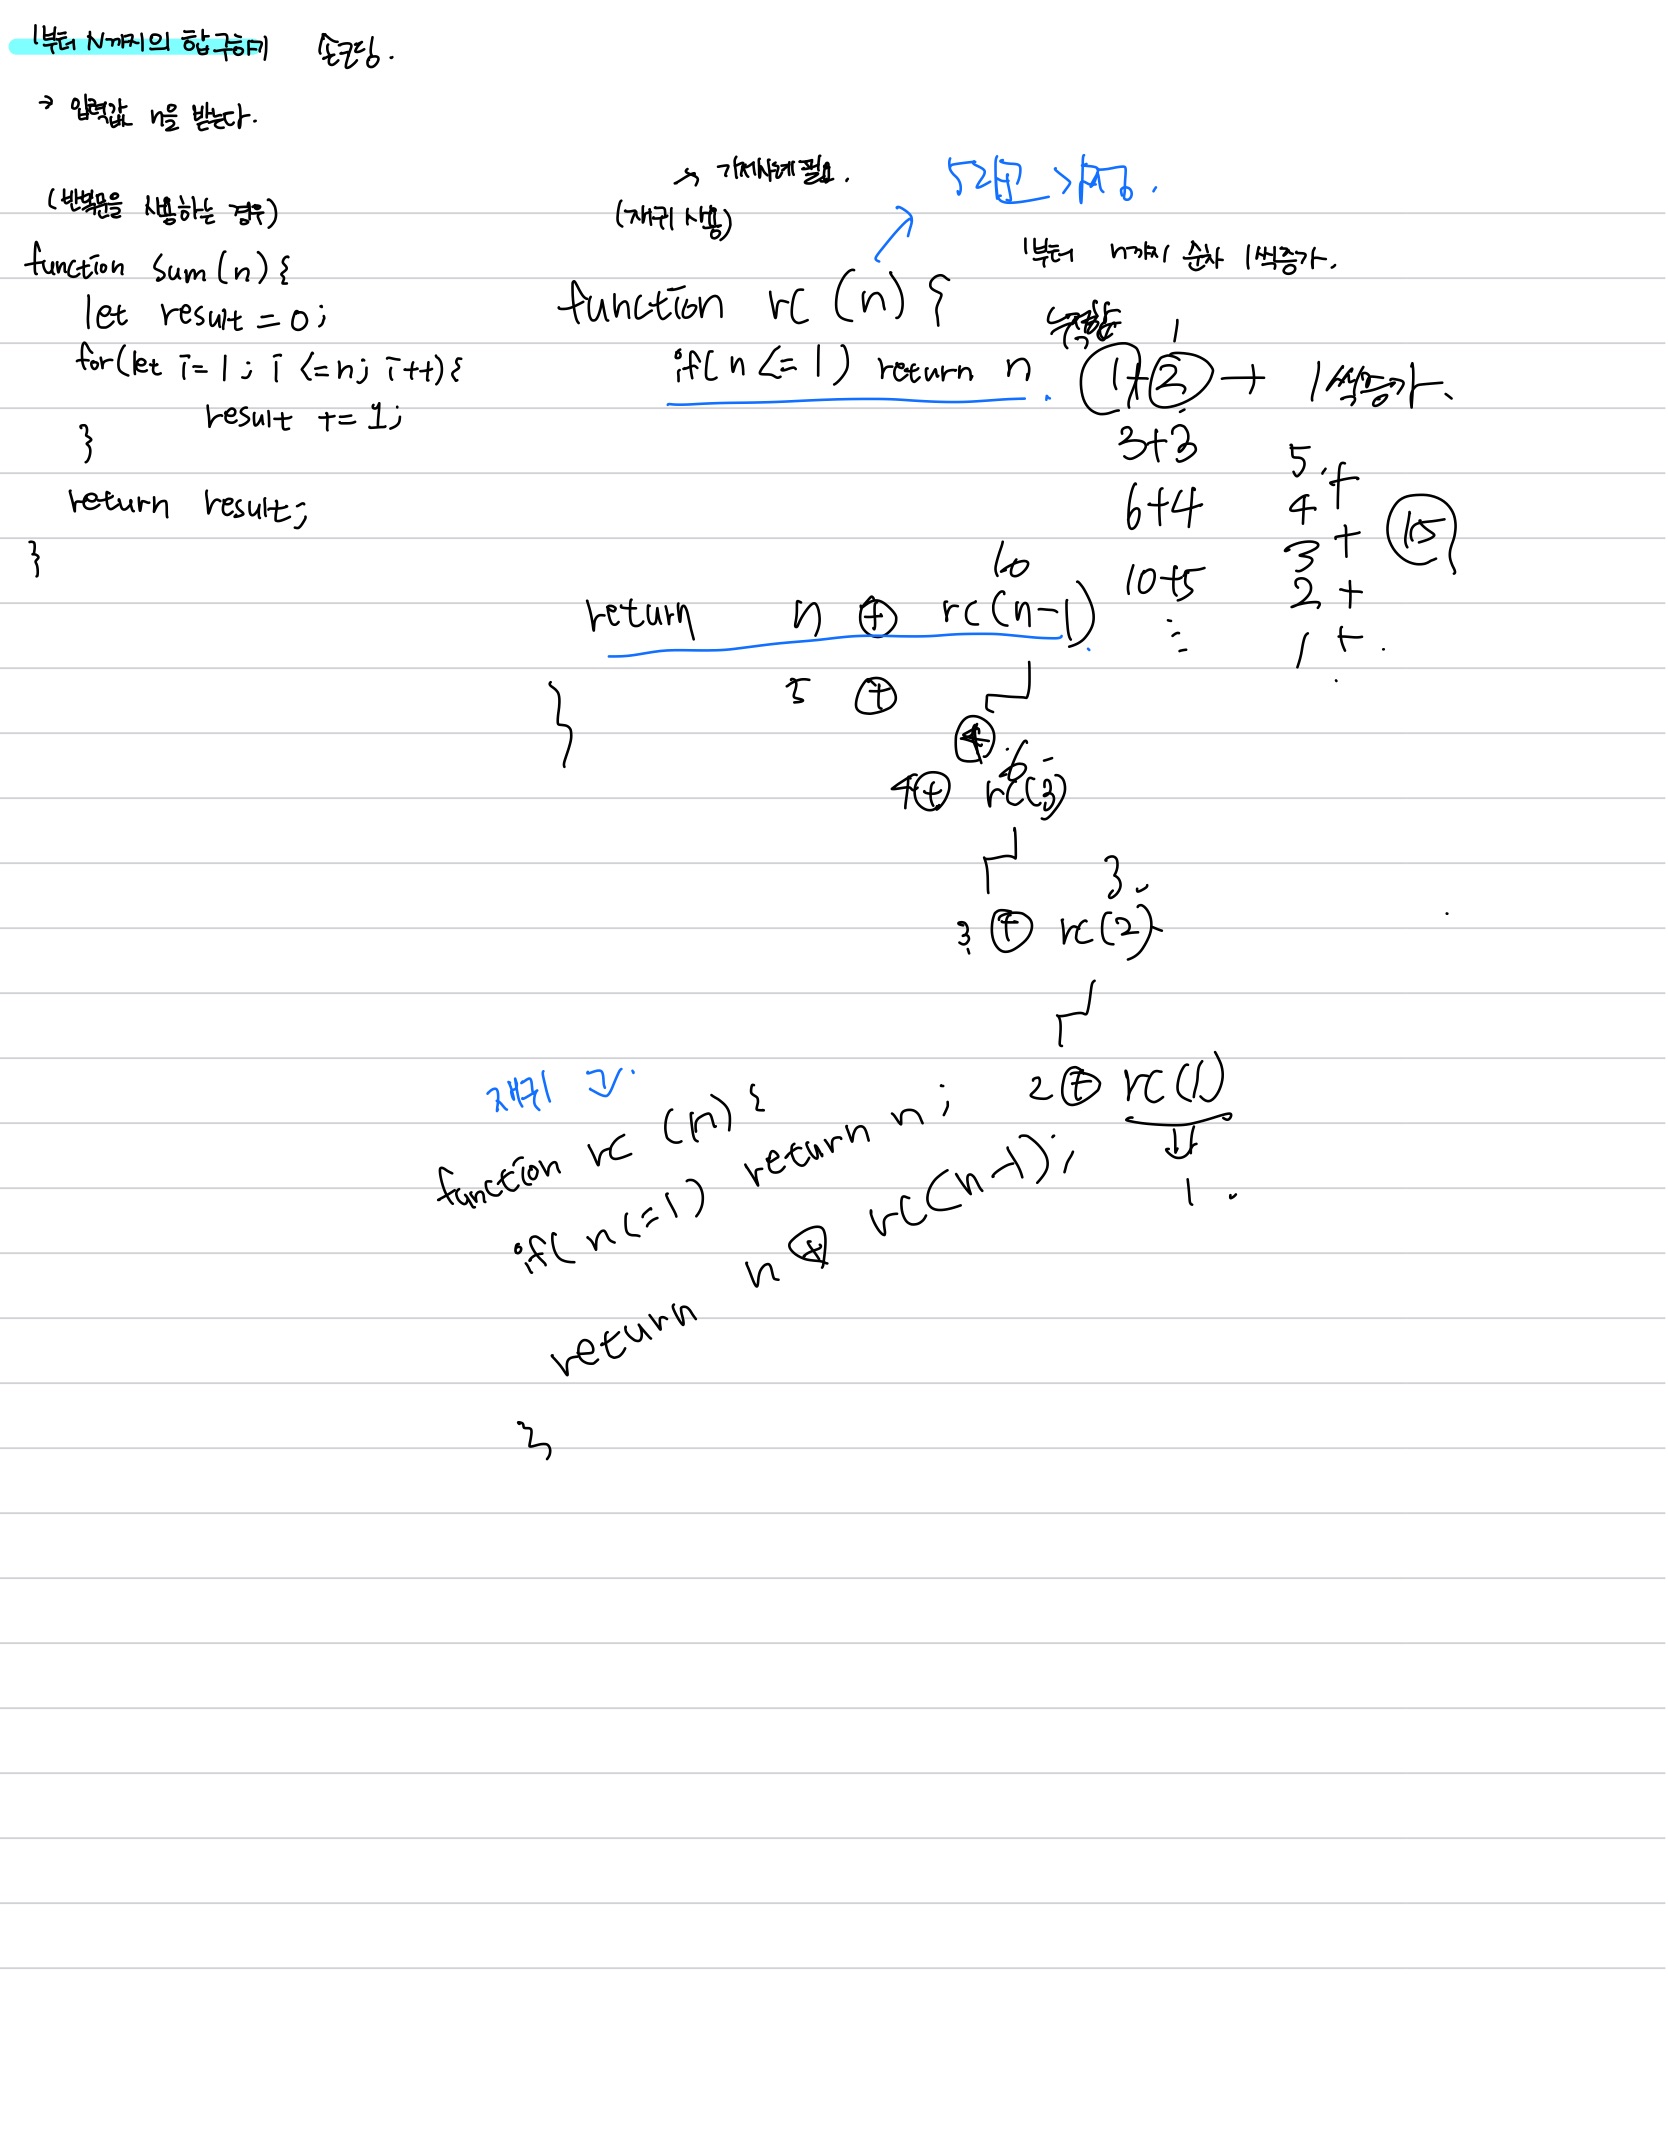 1부터 N까지의 합구하기 손코딩.
→ 입력값 n을 받는다.
(반복문을 사용하는 경우)
function sum(n){
let result = 0;
for(let i=1; i <=n; i++){
result += 1;
}
return result;
}
→ 기저사례 필요.
(재귀 사용)
5라고 가정.
function rc (n) {
if( n <= 1 ) return n
return n + rc(n-1)
10
5 +
4 + rc(3)
6
3 + rc(2)
3.
2 + rc(1)
1.
}
1부터 n까지 순차 1씩증가.
누적합
1
1+2 → 1씩증가.
3+3
6+4
10+5
5 +
4 +
3 +
2 +
1 +
15
재귀
function rc (n) {
if( n<=1) return n;
return n + rc(n-1);
}